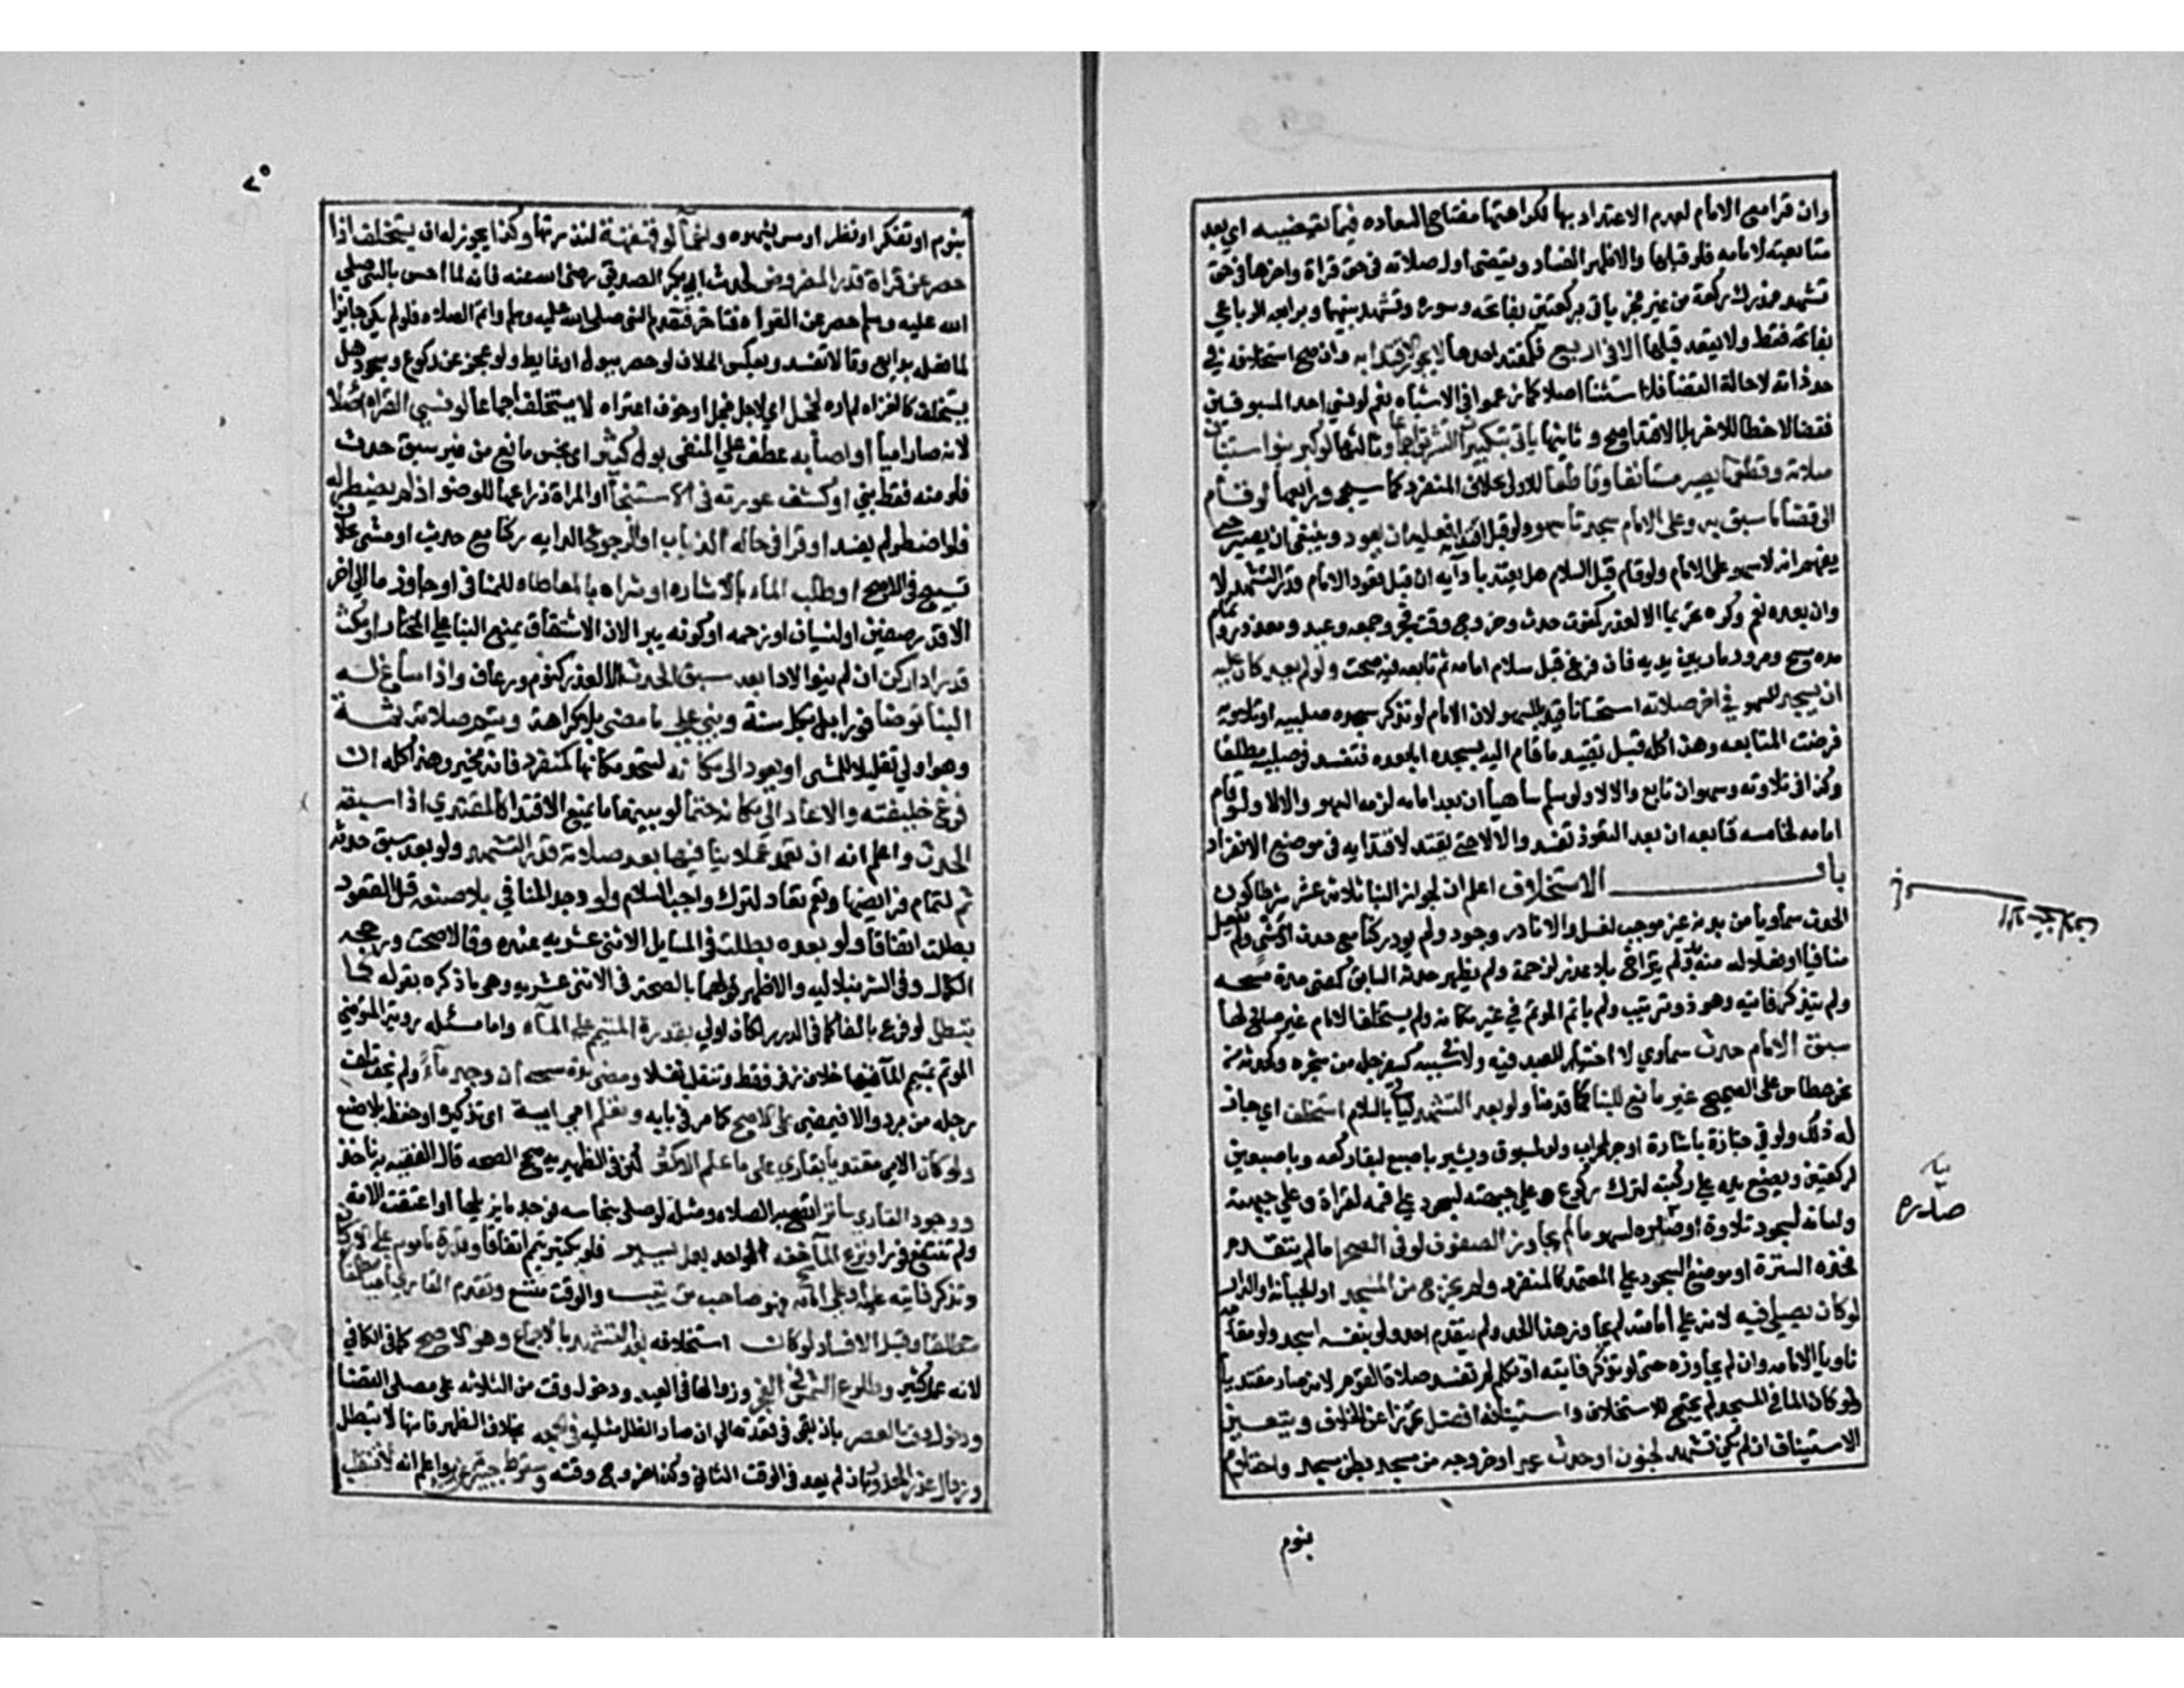 وان قرا مع الامام لعدم الاعتداد بها لكراهتها مفتاح السعاده فيما يقضيه اي بعد
متابعته لامامه فلو قبلها والاظهر الفساد ويقضي اول صلاته في حق قراة واخرها في حق
تشهد فمدرك ركعة من غير فجر ياتي بركعتين بفاتحه وسورة وتشهد بينهما وبرابعه الرباعي
بفاتحة فقط ولا يقعد قبلها الا في اربع فكمقتد احدها لا يجوز الاقتدا به وان صح استخلافه في
حد ذاته لا حالة القضا فلا استثنا اصلا كما زعموا في الاشباه نعم لو نسي احد المسبوقين
فقضا لاحظا للاخر بلا اقتدا صح وثانيها ياتي بتكبيرات التشريق اجماعا وثالثها لو كبر ينوا استيناف
صلاته وقطعها يصير مستانفا وقاطعا للاولى بخلاف المنفرد كما سيجي ورابعها لو قام
الى قضا ما سبق به وعلى الامام سجدتا سهو ولو قبل اقتدايه فعليه ان يعود وينبغي ان يصبر حتى
يفهم انه لا سهو على الامام ولو قام قبل السلام هل يعتد بادايه ان قبل قعود الامام قدر التشهد لا
وان بعده نعم وكره تحريما الا لعذر كخوف حدث وخروج وقت فجر وجمعه وعيد ومعذور وتمام
مده مسح ومرور مار بين يديه فان فرغ قبل سلام امامه ثم تابعه فيه صحت ولو لم يعد كان عليه
ان يسجد للسهو في اخر صلاته استحسانا قيد بالسهو لان الامام لو تذكر سجده صلبيه او تلاوية
فرضت المتابعه وهذا كله قبل تقييد ما قام اليه بسجده اما بعده فتفسد في صلبيه مطلقا
وكذا في تلاوته وسهو ان تابع والا لا ولو سلم ساهيا ان بعد امامه لزمه السهو والا لا ولو قام
امامه لخامسه فتابعه ان بعد القعود تفسد والا لا حتى يقيد لاقتدايه في موضع الانفراد
باب الاستخلاف اعلم ان لجواز البنا ثلاثة عشر شرطا كون
الحدث سماويا من بدنه غير موجب لغسل ولا نادر وجود ولم يود ركنا مع حدث او مشي ولم يفعل
منافيا او فعلا له منه بد ولم يتراخ بلا عذر لزحمة ولم يظهر حدثه السابق كمضي مدة مسحه
ولم يتذكر فايته وهو ذو ترتيب ولم ياتم الموتم في غير مكانه ولم يستخلف الامام غير صالح لها
سبق الامام حدث سماوي لا اختيار للعبد فيه ولا في سببه كسفرجله من شجره وكحدثه من
نحو عطاس على الصحيح غير مانع للبنا كما قدمنا ولو بعد التشهد لياتي بالسلام استخلف اي جاز
له ذلك ولو في جنازة باشارة او جر لمحراب ولو لمسبوق ويشير باصبع لبقا ركعه وباصبعين
لركعتين ويضع يده على ركبته لترك ركوع وعلى جبهته لسجود على فمه لقراة وعلى جبهته
ولسانه لسجود تلاوة او صدره لسهو ما لم يجاوز الصفوف لو في الصحرا ما لم يتقدم
فحده السترة او موضع السجود على المعتمد كالمنفرد ولم يخرج من المسجد او الجبانة او الدار
لو كان يصلي فيه لانه على امامته لم يجاوز هذا الحد ولم يتقدم احد ولو بنفسه اسجد ولو مقامه
ناويا الامامه وان لم يجاوزه حتى لو تذكر فايته او تكلم لم تفسد صلاة القوم لانه صار مقتديا
ولو كان الما في المسجد لم يحتج للاستخلاف واستينافه افضل تحرزا عن الخلاف ويتعين
الاستيناف ان لم يكن تشهد لجنون او حدث عمدا وخروجه من مسجد بظن سجد واحتلام
بنوم
بيان
صدره
٢٥
بنوم او تفكر او نظر او مس بشهوه واغماء او قهقهة لندرتها وكذا يجوز له ان يستخلف اذا
حصر عن قراة قدر المفروض لحديث ابي بكر الصديق رضي الله عنه فانه لما احس بالنبي صلى
الله عليه وسلم حصر عن القراه فتاخر فتقدم النبي صلى الله عليه وسلم واتم الصلاه فلو لم يكن جايزا
لما فعله بدايع وقالا تفسد وبعكس الخلاف لو حصر ببول او غايط ولو عجز عن ركوع وسجود هل
يستخلف كالقراه لم اره لخجل اي لاجل خجل او خوف اعتراه لا يستخلف اجماعا لو نسي القراه اصلا
لانه صار اميا او اصابه عطف على المنفي بول كثير اي نجس مانع من غير سبق حدث
فلو منه فقط بني او كشف عورته في الاستنجا او المراة ذراعها للوضو اذا لم يضطر له
فلو اضطر لم يفسد او قرا في حالة الذهاب او الرجوع لادايه ركنا مع حدث او مشي بخلاف
تسبيح في الاصح او طلب الماء بالاشاره او شراه بالمعاطاه للمنافي او جاوز ما الى اخر
الا قدر صفين او لنسيان او زحمه او كونه بيرا لان الاستقاء يمنع البنا على المختار او مكث
قدر ادا ركن ان لم ينوا الادا بعد سبق الحدث الا لعذر كنوم ورعاف واذا ساغ له
البنا توضا فورا بكل سنة وبني على ما مضى بلا كراهة ويتم صلاته ثمة
وهو اولى تقليلا للمشي او يعود الى مكانه ليتحد مكانها كمنفرد فانه مخير وهذا كله ان
فرغ خليفته والا عاد الى مكانه حتما لو بينهما ما يمنع الاقتدا كالمقتدي اذا سبقه
الحدث واعلم انه ان تعمد عملا ينافيها بعد صلاته قدر التشهد ولو بعد سبق حدثه
تم لتمام فرايضها ونعم تعاد لترك واجب السلام ولو وجد المنافي بلا صنعه قبل القعود
بطلت اتفاقا ولو بعده بطلت في المسايل الاثني عشريه عنده وقالا صحت ورجحه
الكمال وفي الشرنبلاليه والاظهر قولهما بالصحة في الاثني عشريه وهي ما ذكره بقوله كما
تبطل لو فرع بالفا كما في الدرر لكان اولى بقدرة المتيمم على الماء واما مسئله رويه المتوضي
الموتم بمتيمم الما ففيها خلاف زفر فقط وتنقل نفلا ومضى مدة مسحه ان وجد ماءً ولم يخف تلف
رجله من برد والا فيمضي على الاصح كما مر في بابه وتعلم امي اية اي تذكره او حفظه بلا صنع
ولو كان الامي مقتديا بقاري على ما عليه الاكثر لكن في الظهيريه صحح الصحه قال الفقيه به ناخذ
ووجود العاري ساترا تصح به الصلاه ومثله لو صلى بنجاسه فوجد ما يزيلها او اعتقت الامه
ولم تتقنع فورا ونزع الماسح خفه الواحد بعمل يسير فلو بكثير تتم اتفاقا
وتذكر فايته عليه او على امامه وهو صاحب ترتيب والوقت متسع وتقدم القاري اميا مطلقا
مطلقا وقيل لا فساد لو كان استخلافه بعد التشهد بالاجماع وهو الاصح كما في الكافي
لانه عمل كثير وطلوع الشمس في الفجر وزوالها في العيد ودخول وقت من الثلاثه على مصلي القضا
ودخول وقت العصر بان بقي في قعدته الى ان صار الظل مثليه في الجمعه بخلاف الظهر فانها لا تبطل
وزوال عذر المعذور بان لم يعد في الوقت الثاني وكذا خروج وقته وسقوط جبيرة عن برء واعلم انه لا تنقلب